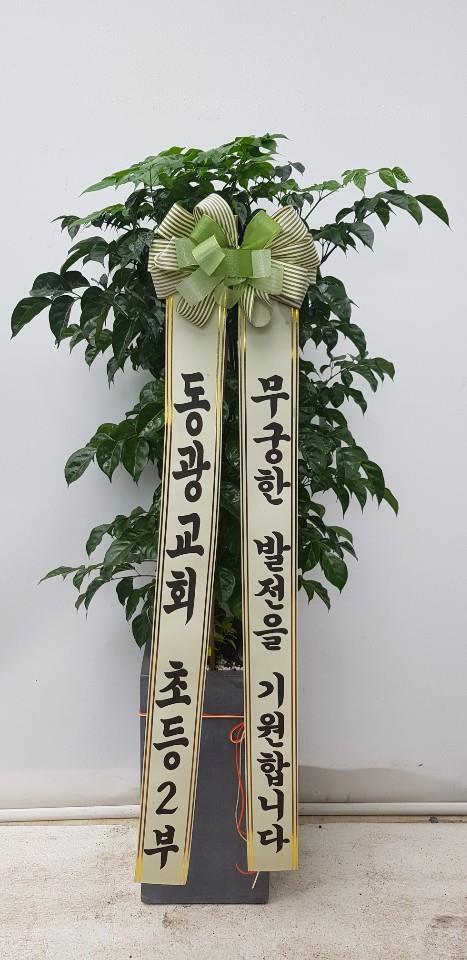 동광교회 초등2부
무궁한 발전을 기원합니다